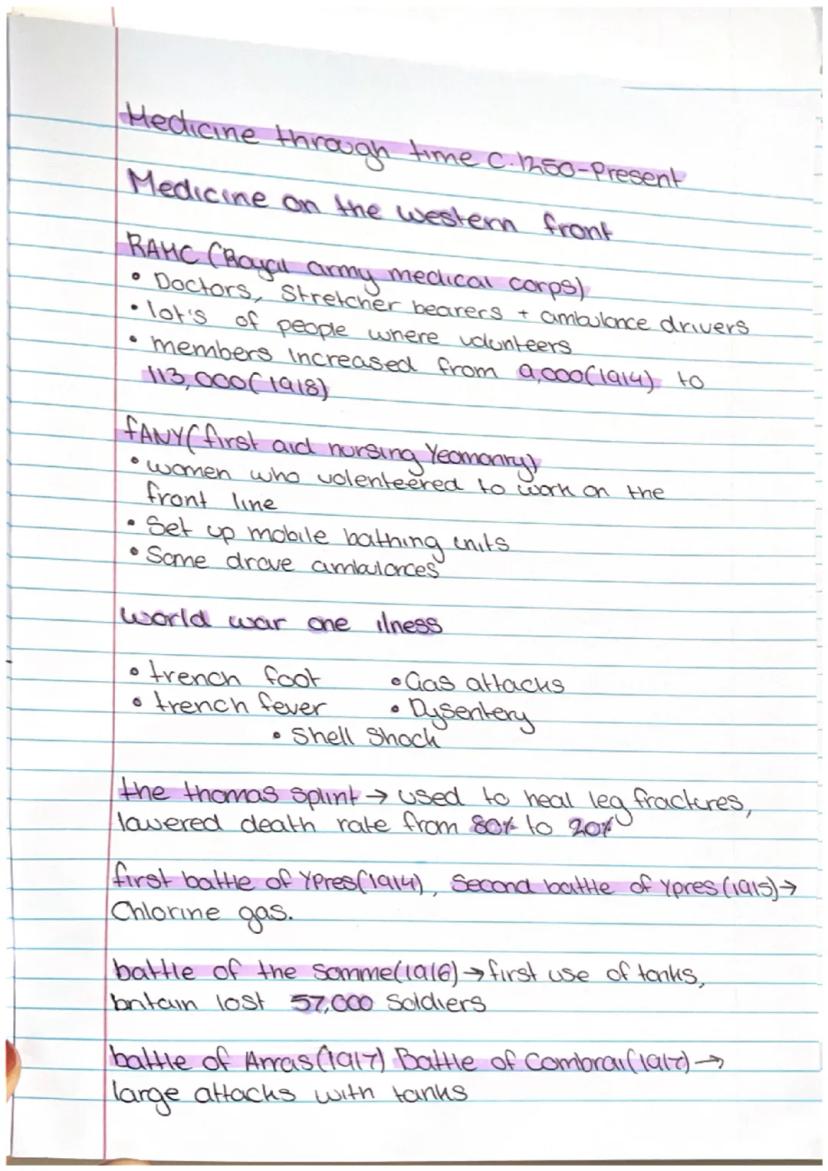 Medicine through time c.1250-Present
Medicine on the western front
RAMC (Royal army medical corps)
• Doctors, Stretcher bearers + ambulance drivers
• lot's of people where volunteers
• members increased from 9,000(1914) to
113,000(1918)
fANY(first aid nursing Yeomanry)
• women who volenteered to work on the
front line
• Set up mobile bathing units
• Some drove ambulances
world war one ilness
• trench foot • Gas attacks
• trench fever • Dysentery
• Shell Shock
the thomas splint → used to heal leg fractures,
lowered death rate from 80% to 20%
first battle of Ypres(1914), Second battle of Ypres (1915)→
Chlorine gas.
battle of the somme(1916)→first use of tanks,
britain lost 57,000 Soldiers
battle of Arras(1917) Battle of Cambrai(1917)→
large attacks with tanks